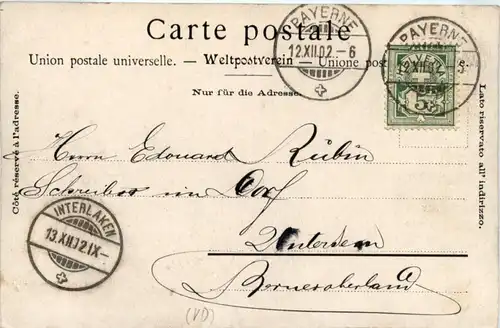 Carte postale
Union postale universelle. — Weltpostverein — Unione post
Nur für die Adresse.
Côté réservé à l'adresse.
Lato riservato all' indirizzo.
PAYERNE
12.XII.02.–6
PAYERNE
12.XII.02. 5
5
Herrn Edouard Rubin
Schreiber im Dorf
Unterseen
Berneroberland
INTERLAKEN
13.XII.02 IX–
(VD)